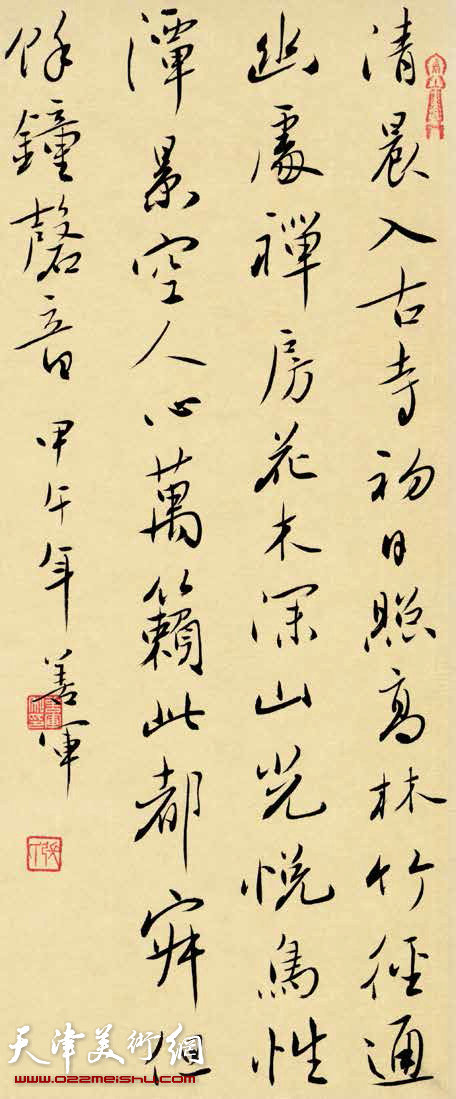 清晨入古寺初日照高林竹徑通
幽處禪房花木深山光悅鳥性
潭景空人心萬籟此都寂但
餘鐘磬音甲午年善軍
天津美術網
www.022meishu.com